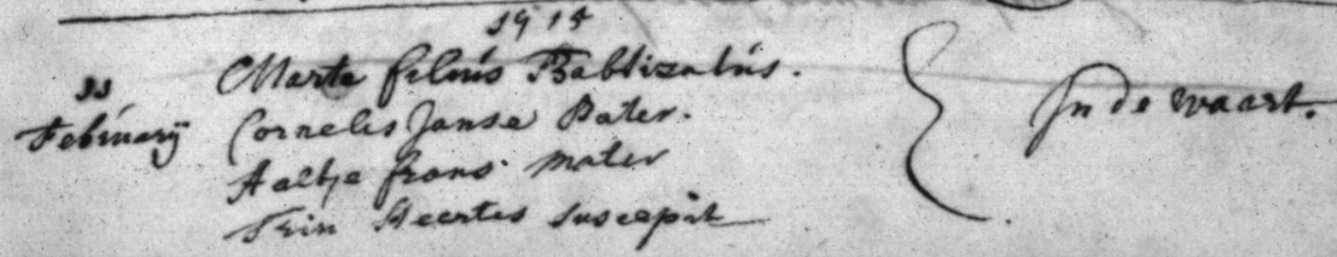 1715
11
February
Marta filius Babtizatus.
Cornelis Janse Pater.
Aaltje frans mater
Trin Heertes suscepit
In de waart.